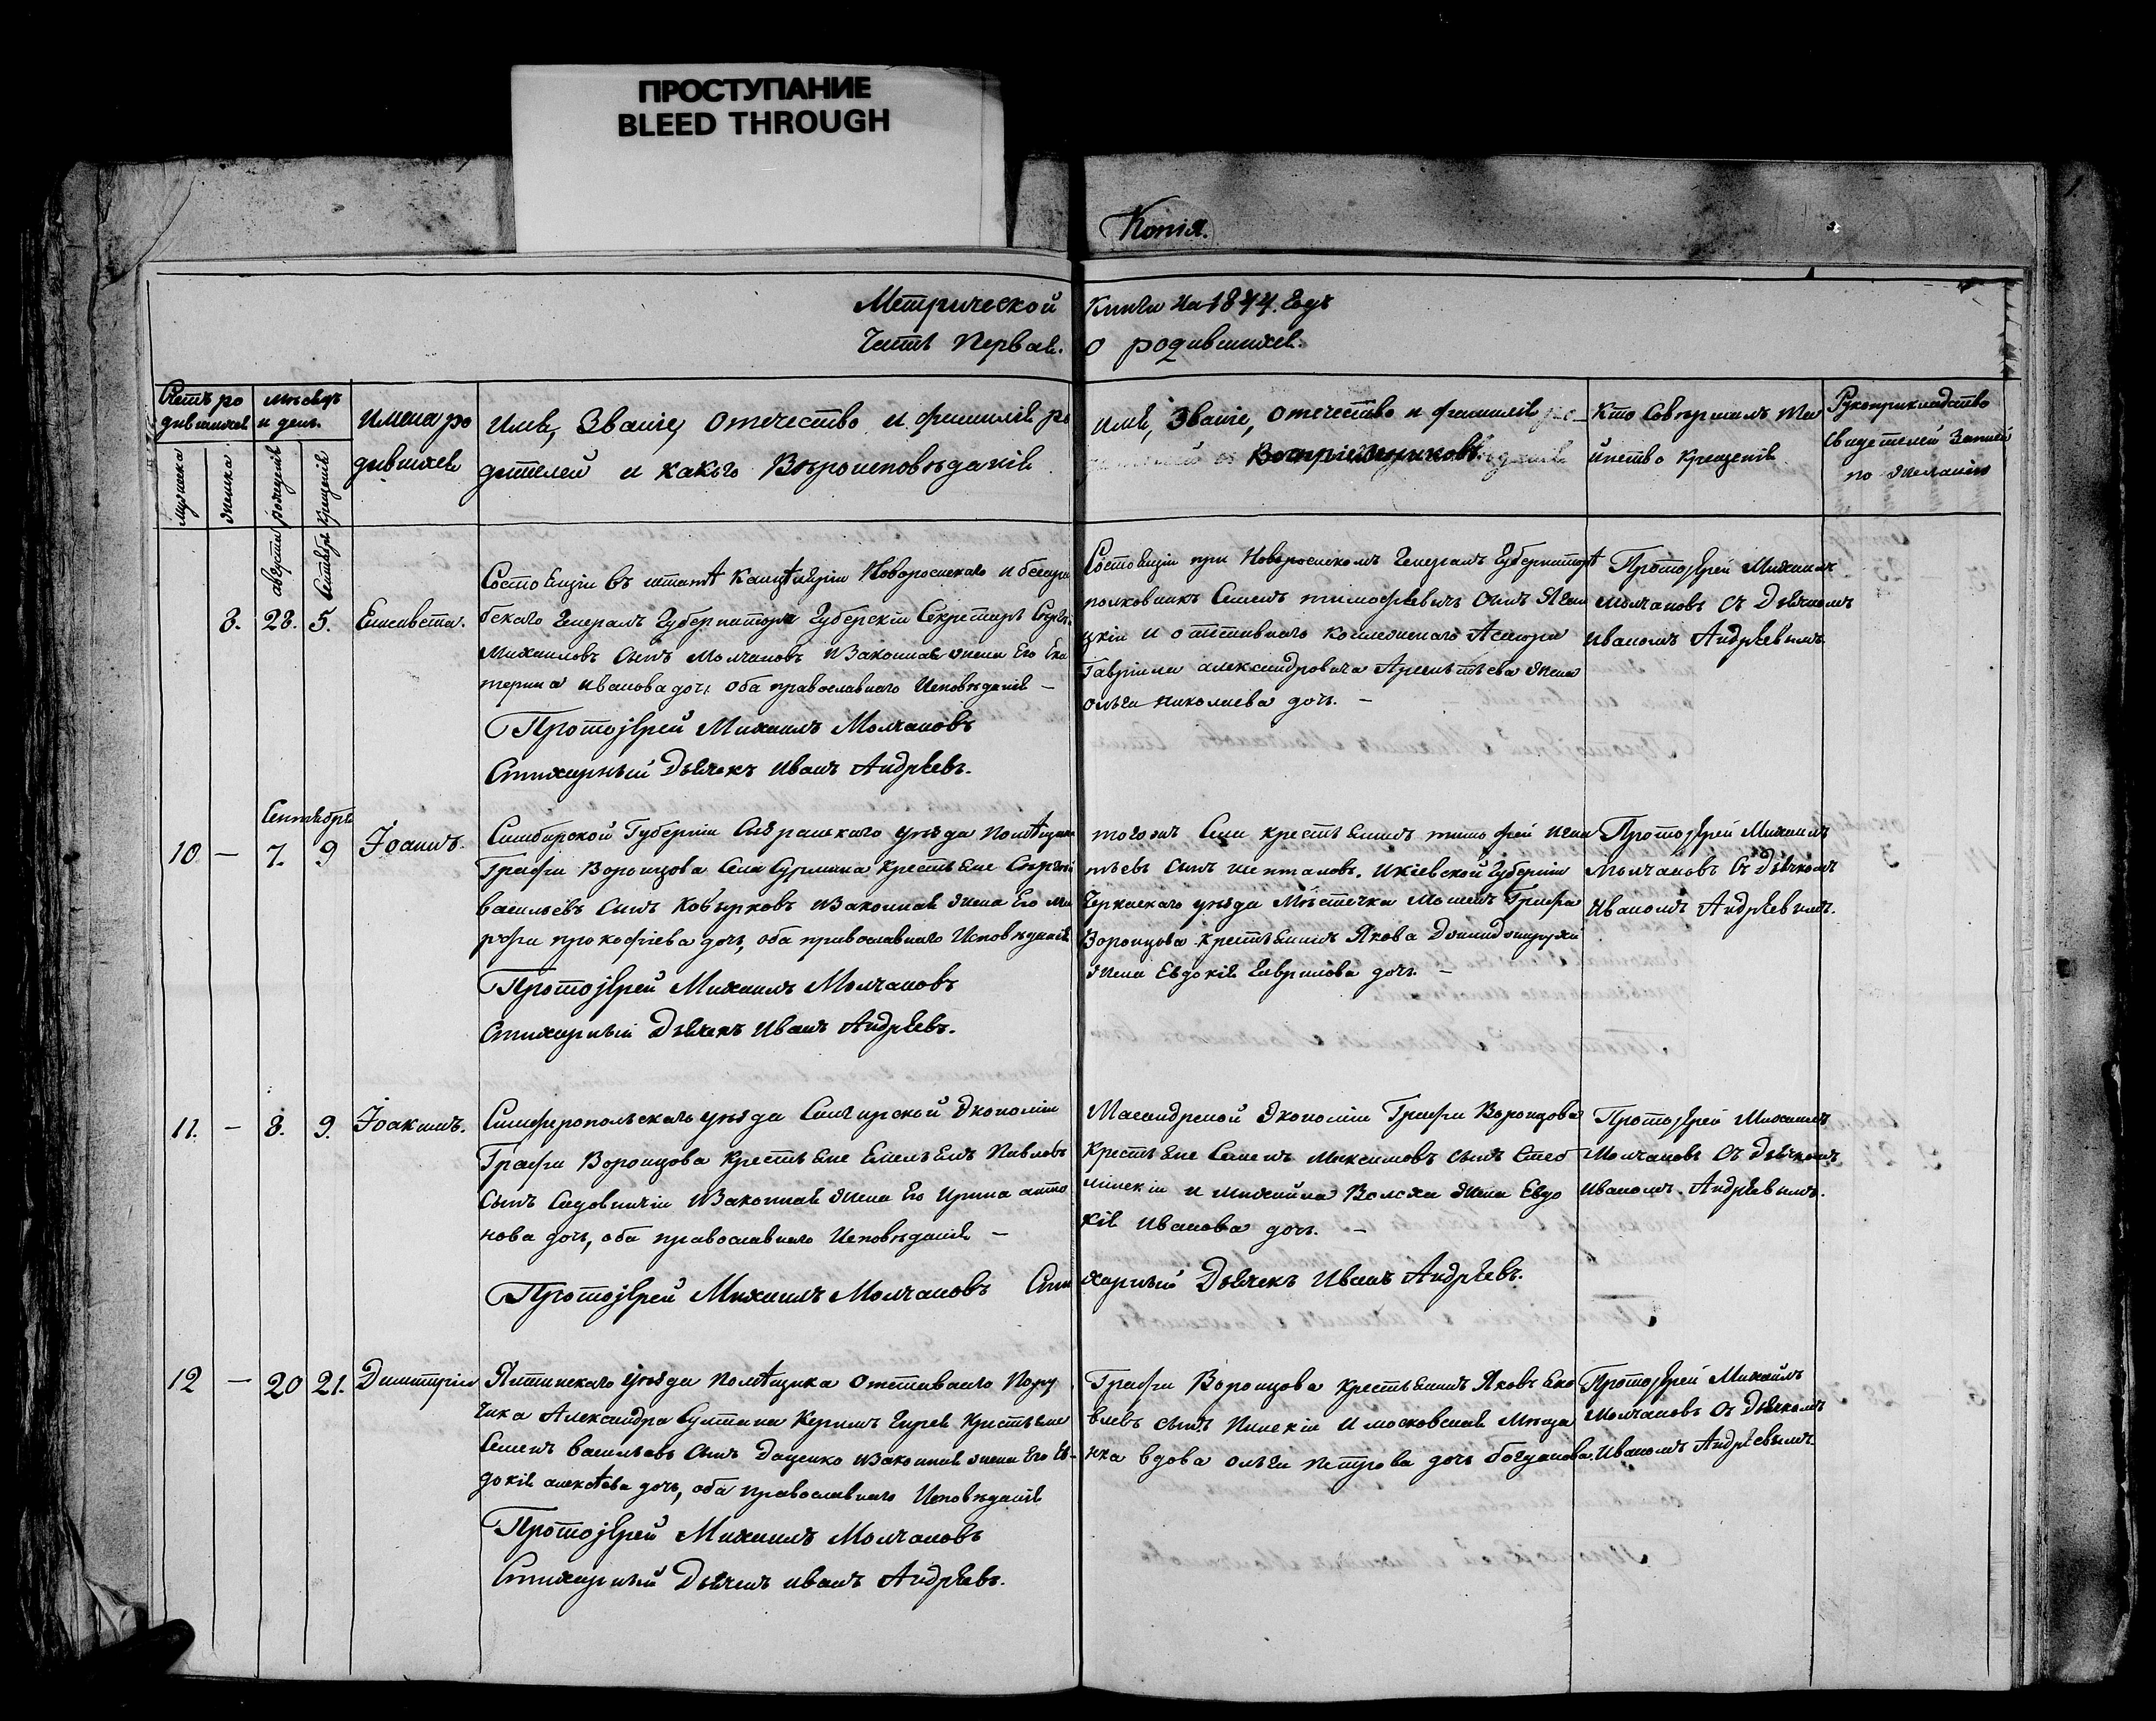 ПРОСТУПАНИЕ
BLEED THROUGH
Копія.
Метрической Книги на 1844. Годъ
Часть Первая. о родившихся.
Счетъ ро
дившихся
Мужеска
Женска
Мѣсяцъ
и день.
рожденія
Крещенія
Имена ро
дившихся
Имя, Званіе, Отечество и фамилія ро
дителей и какого Вѣроисповѣданія
Имя, Званіе, Отечество и фамилія
Воспріемниковъ.
Кто Совершалъ Таи
инство Крещенія
Рукоприкладство
Свидетелей Записи
по Желанію
Августа
Сентября
8. 28. 5. Елисавета.
Состоящій въ штатѣ Канцѣлярій Новоросискаго и бесара
бскаго Генералъ Губернатора Губерскій Секретарь Сергѣй
Михаиловъ Сынъ Молчановъ Изаконная жена Его Ека
терина Иванова дочь Оба православнаго Исповѣданія —
Протоіерей Михаилъ Молчановъ
Стихарный Дьячекъ Иванъ Андреевъ.
Состоящій при Новоросискомъ Генералъ Губернаторѣ
полковникъ Семенъ тимофѣевичъ Сынъ
цкій и отставнаго колежскаго Асесора
Гавріила александровича жена
ольга николаева дочь. —
Протоіерей Михаилъ
Молчановъ Съ Дьячкомъ
Иваномъ Андреевымъ.
Сентябрь
10 — 7. 9 Іоаннъ.
Симбирской Губерніи Сызранскаго уѣзда помѣщика
Графа Воронцова Села Крестьяне Сергѣй
васильевъ Сынъ Ковырковъ Изаконная жена Его Ма
рфа прокофіева дочь, оба православнаго Исповѣданія
Протоіерей Михаилъ Молчановъ
Стихарный Дьячекъ Иванъ Андреевъ.
тогожъ Села крестьянинъ тимофей Игна
тьевъ Сынъ шепталовъ. Икіевской Губерніи
Черкаскаго уѣзда Мѣстечка Мошенъ Графа
Воронцова крестьянинъ Якова
жена Евдокія Гаврилова дочь. —
Протоіерей Михаилъ
Молчановъ Съ Дьячкомъ
Иваномъ Андреевымъ.
11. — 8. 9. Іоакимъ.
Симферопольскаго уѣзда Экономіи
Графа Воронцова крестьяне Емельянъ Павловъ
Сынъ Садовничій Изаконная жена Его Ирина анто
нова дочь, оба православнаго Исповѣданія —
Протоіерей Михаилъ Молчановъ Сти
харный Дьячекъ Иванъ Андреевъ.
Масандрской Экономіи Графа Воронцова
Крестьяне Семенъ Максимовъ сынъ
и жена Евдо
кія Иванова дочь. —
Протоіерей Михаилъ
Молчановъ Съ Дьячкомъ
Иваномъ Андреевымъ.
12 — 20 21. Димитрій
Ялтинскаго уѣзда помѣщика Отставнаго Пору
чика Александра Султана Керимъ Гирея Крестьяне
Семенъ васильевъ Сынъ Даценко Изаконная жена Его Ев-
докія алексѣева дочь, оба православнаго Исповѣданія
Протоіерей Михаилъ Молчановъ
Стихарный Дьячекъ иванъ Андреевъ.
Графа Воронцова Крестьянинъ Яковъ
сынъ и московская Мѣща
нка вдова ольга петрова дочь богданова.
Протоіерей Михаилъ
Молчановъ Съ Дьячкомъ
Иваномъ Андреевымъ.